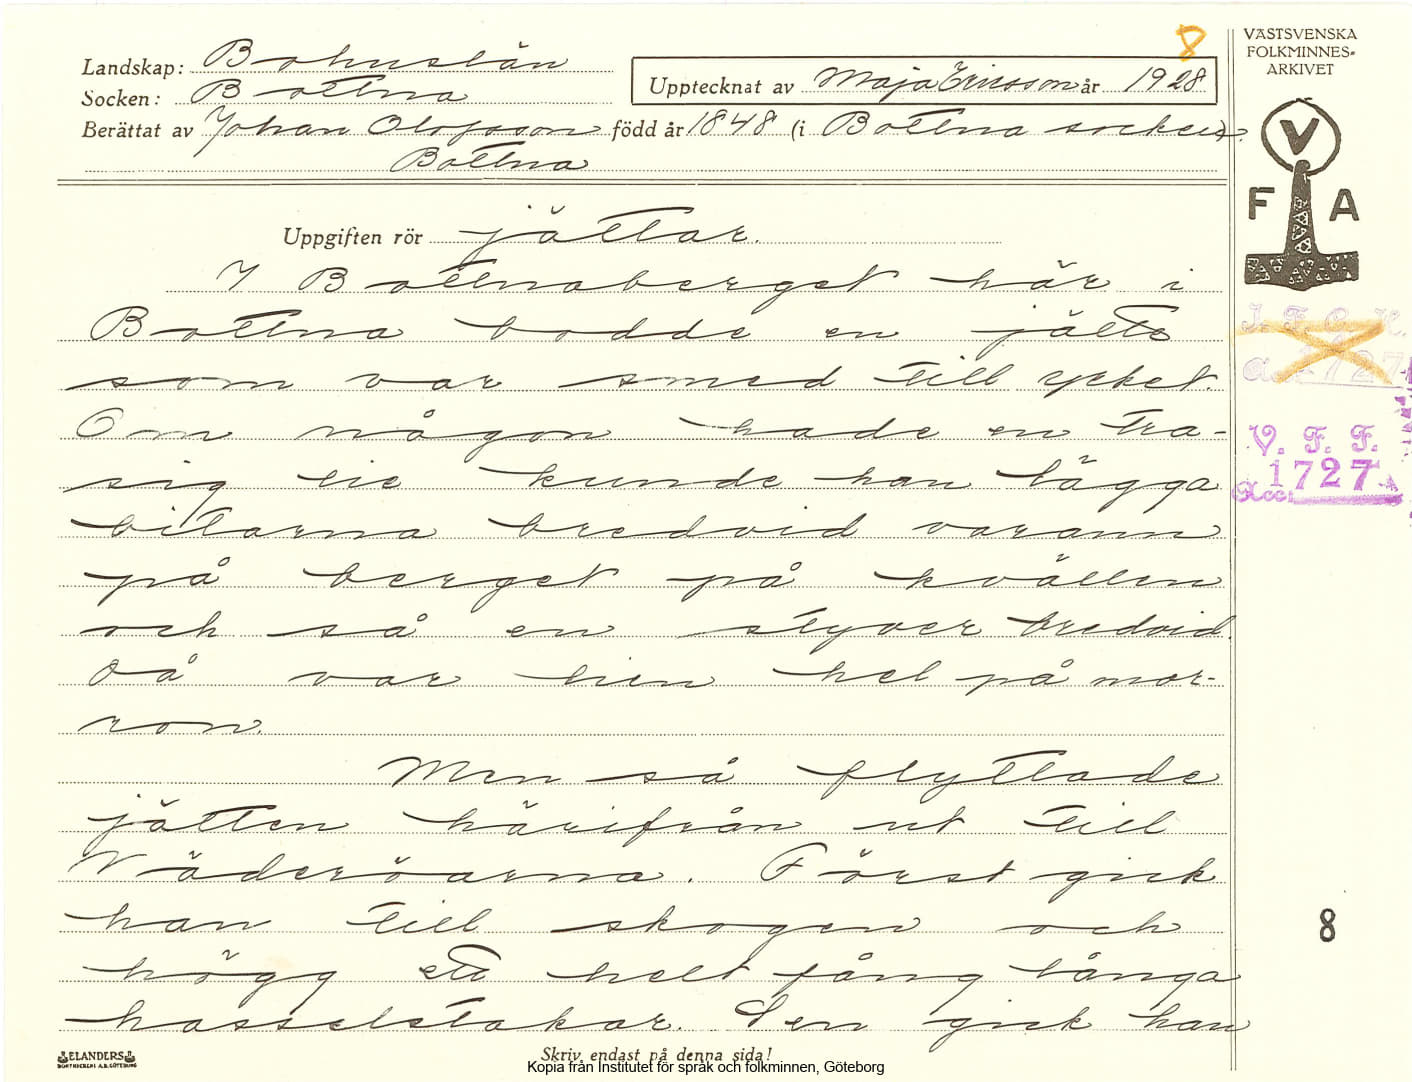 8
VÄSTSVENSKA
FOLKMINNES-
ARKIVET
Landskap: Bohuslän
Socken: Bottna
Upptecknat av Maja Ericsson år 1928
Berättat av Johan Olofsson född år 1848 (i Bottna socken).
Bottna
V
F A
Uppgiften rör jättar.
I Bottnaberget här i
Bottna bodde en jätte
som var smed till yrket.
Om någon hade en tra-
sig lie kunde han lägga
bitarna bredvid varann
på berget på kvällen
och så en styver bredvid.
Då var lien hel på mor-
ron.
Men så flyttade
jätten härifrån ut till
Väderöarna. Först gick
han till skogen och
högg ett helt fång långa
hasselstakar. Sen gick han
I. F. G. H.
Acc. 1727
V. F. F.
Acc: 1727
8
ELANDERS
BOKTRYCKERI A.B. GÖTEBORG
Skriv endast på denna sida!
Kopia från Institutet för språk och folkminnen, Göteborg